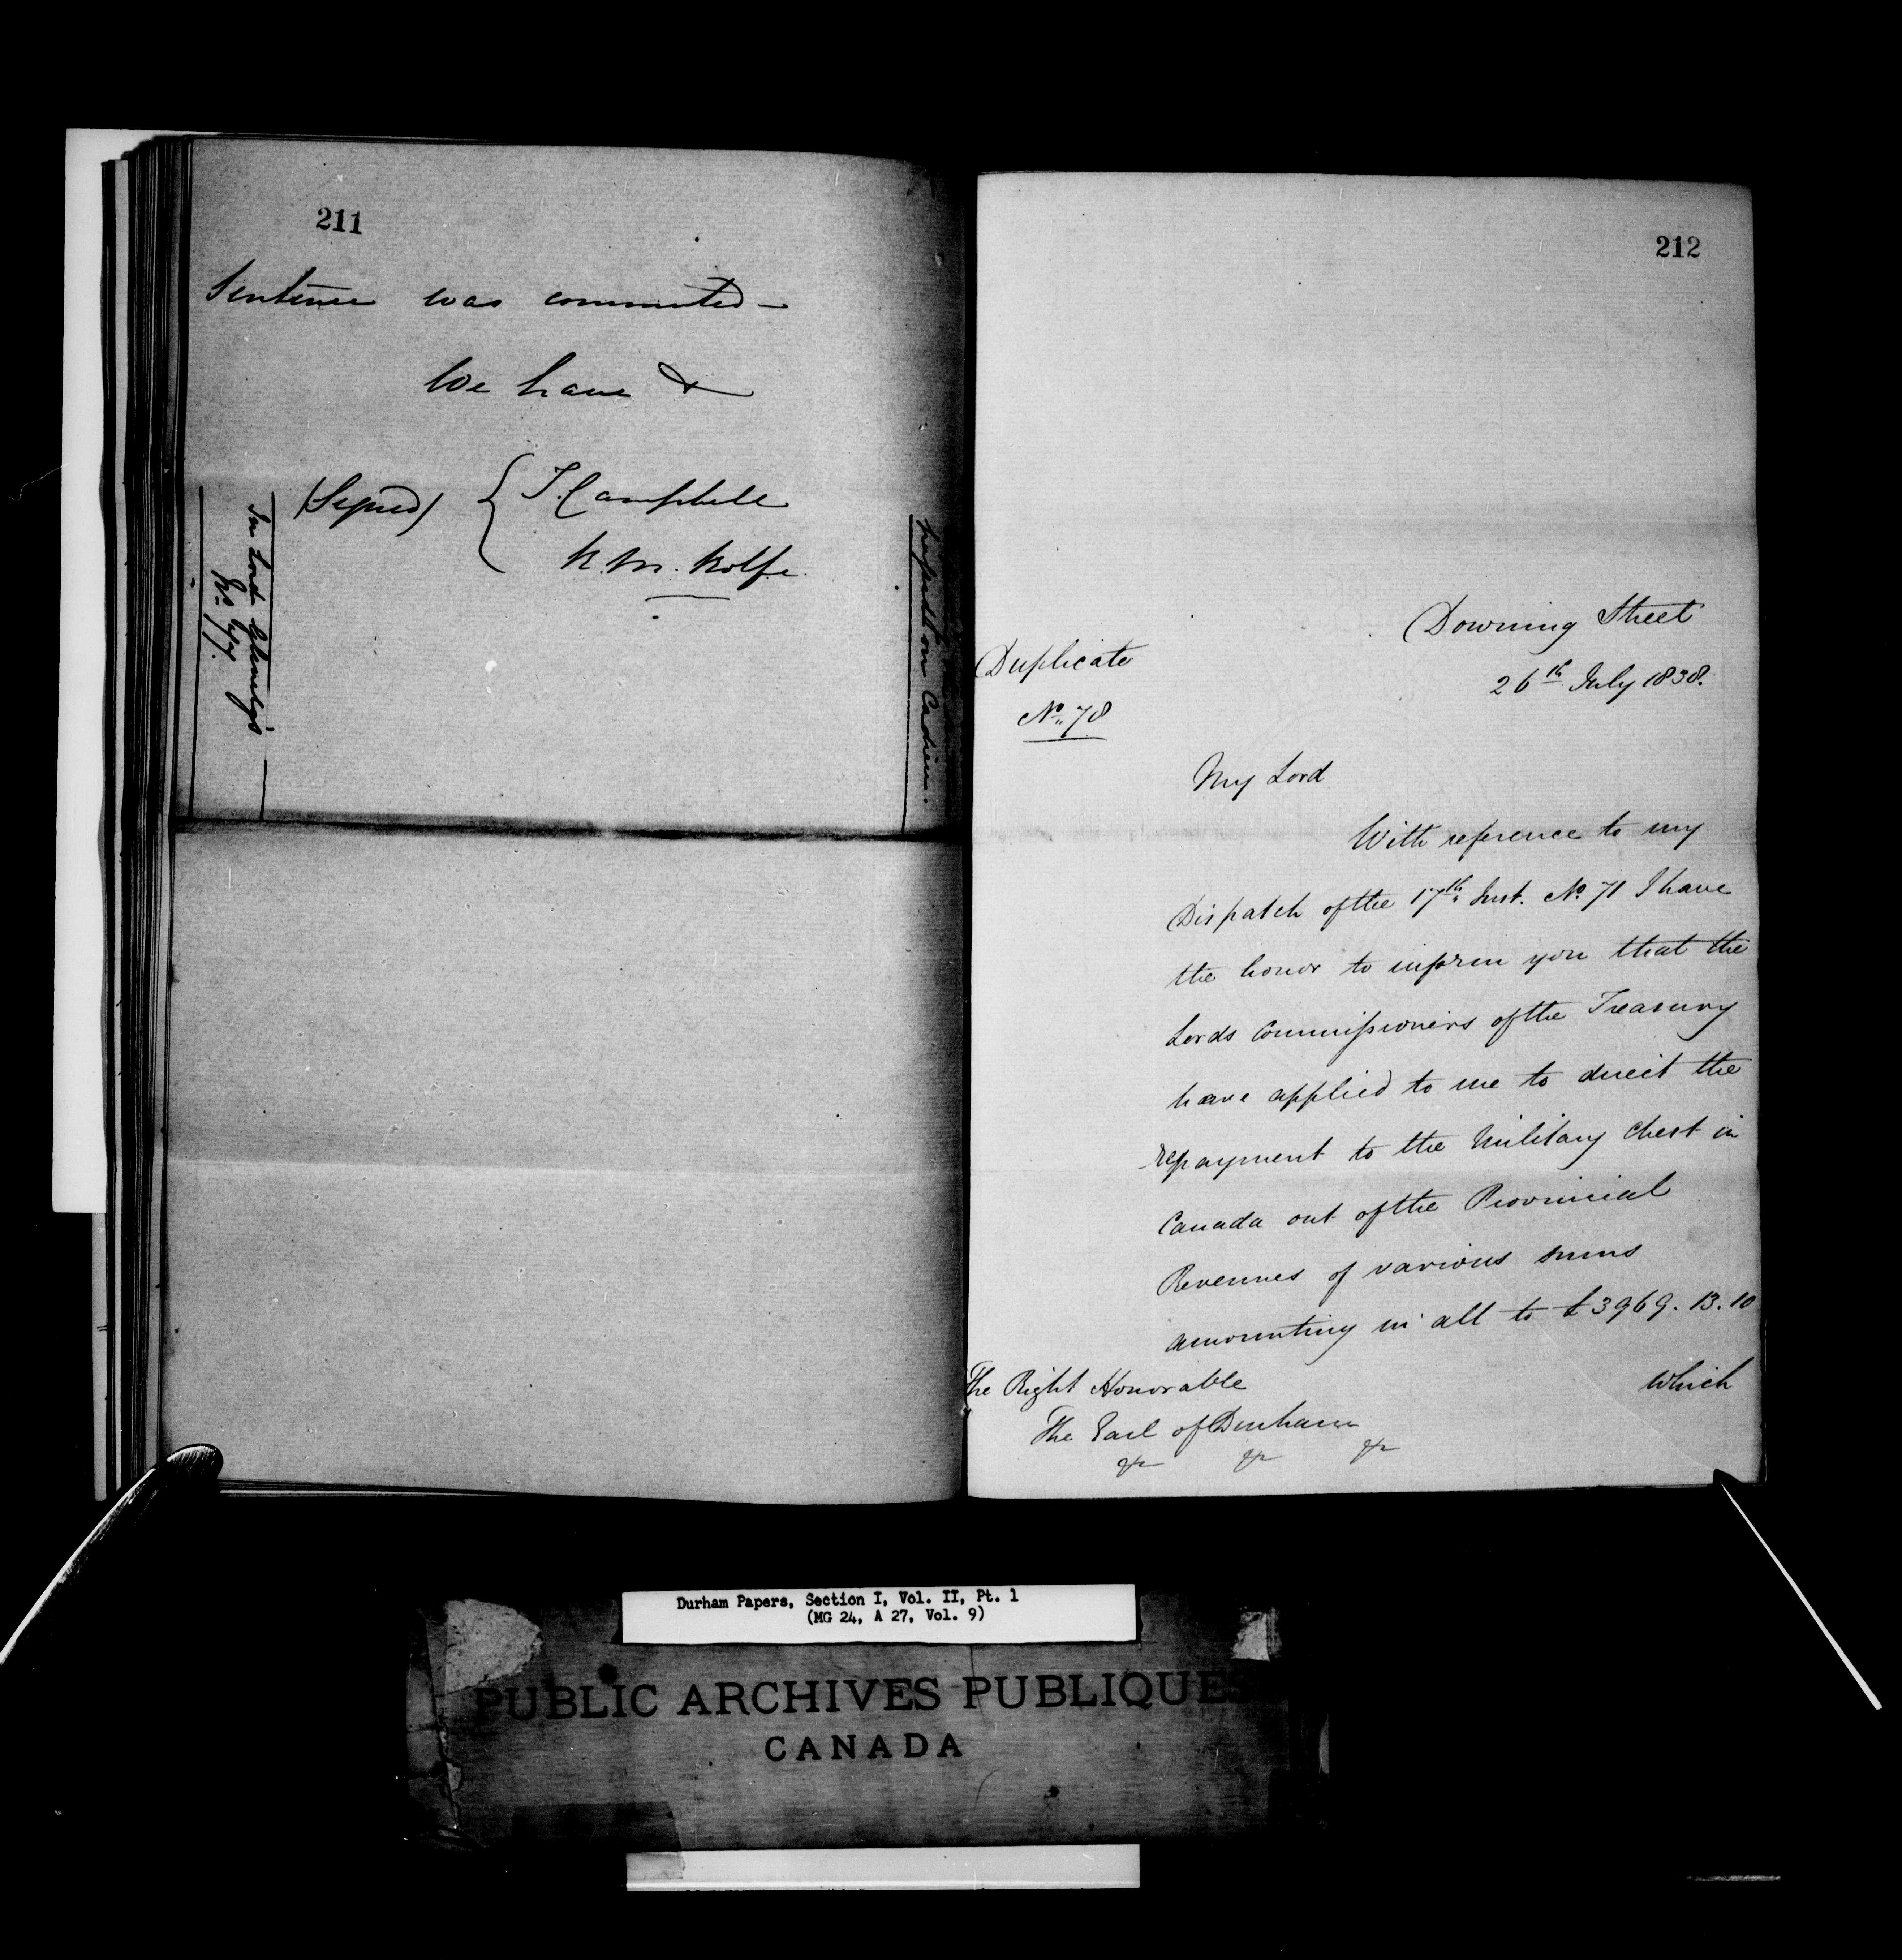 211
Sentence was commuted —
We have &
(Signed) { J. Campbell
R. M. Rolfe.
In Lord Glenelg's
No. 77.
Cadieu.
212
Downing Street
26th July 1838.
Duplicate
No. 78
My Lord
With reference to my
Dispatch of the 17th Inst. No. 71 I have
the honor to inform you that the
Lords Commissioners of the Treasury
have applied to me to direct the
repayment to the Military Chest in
Canada out of the Provincial
Revenues of various sums
amounting in all to £3969. 13. 10
which
The Right Honorable
The Earl of Durham
&c &c &c
Durham Papers, Section I, Vol. II, Pt. 1
(MG 24, A 27, Vol. 9)
PUBLIC ARCHIVES PUBLIQUES
CANADA